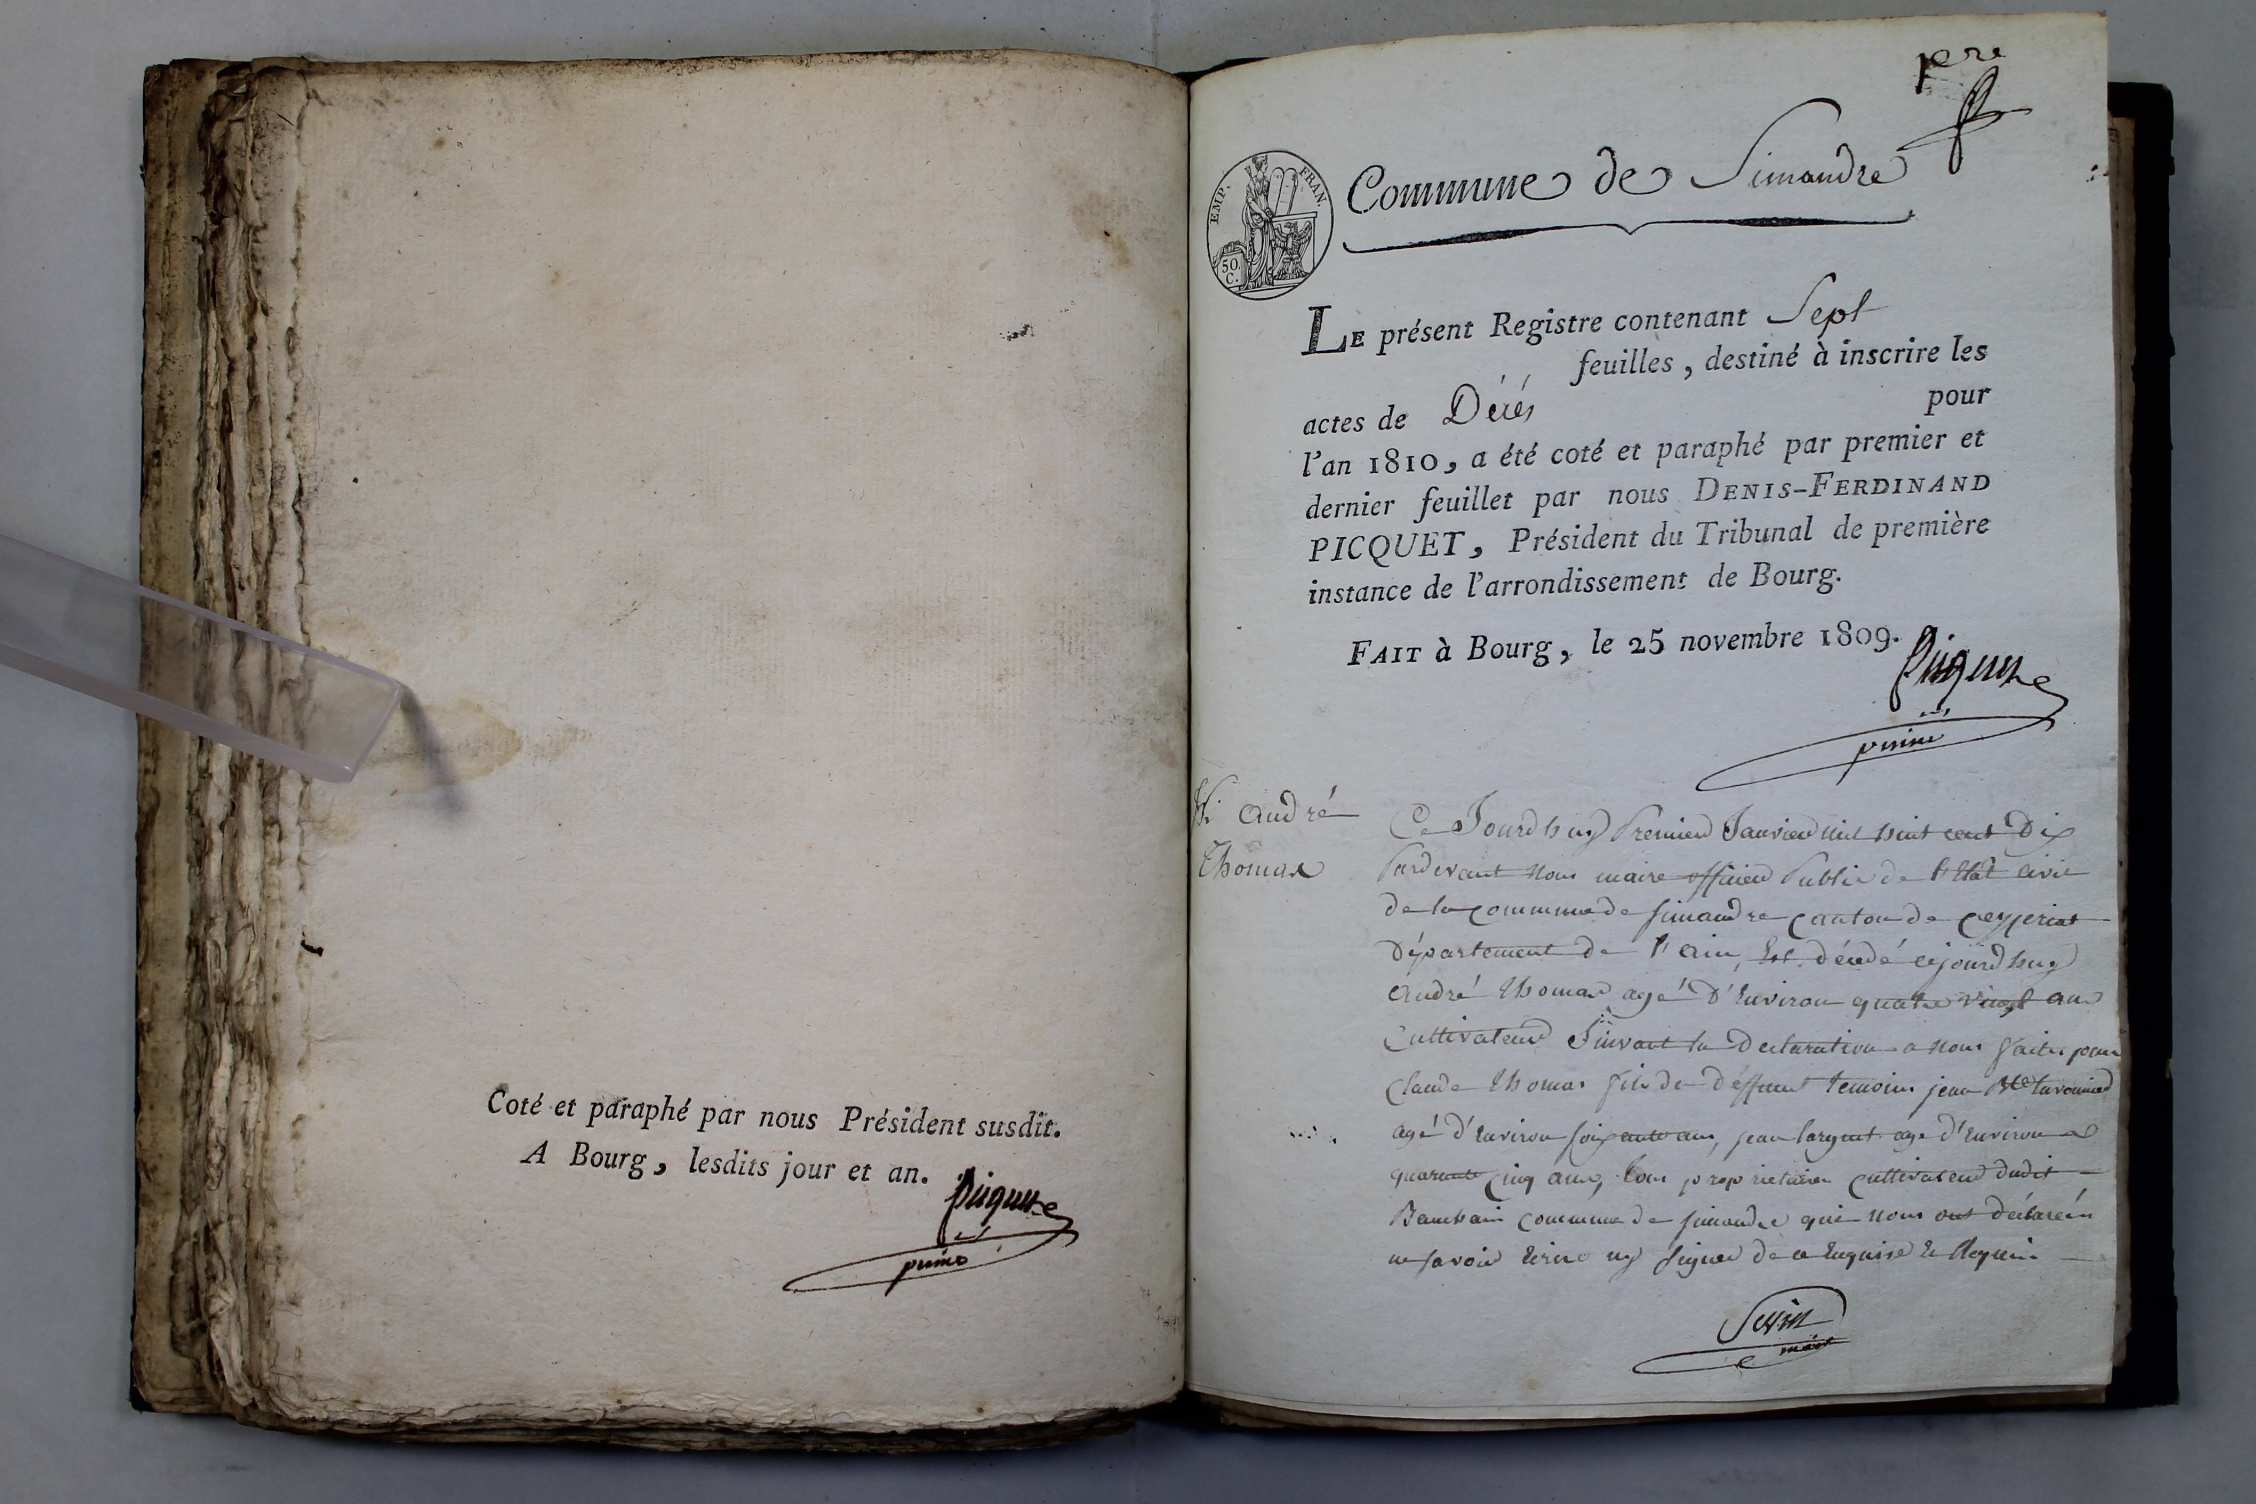 Coté et paraphé par nous Président susdit.
A Bourg, lesdits jour et an.
Picquet
1ere
EMP. FRAN.
50 C.
Commune de Simandre
LE présent Registre contenant Sept
feuilles, destiné à inscrire les
actes de Décés pour
l'an 1810, a été coté et paraphé par premier et
dernier feuillet par nous DENIS-FERDINAND
PICQUET, Président du Tribunal de première
instance de l'arrondissement de Bourg.
FAIT à Bourg, le 25 novembre 1809.
Picquet
André
Thomas
Ce Jourdhuy Premier Janvier mil huit cent Dix
Pardevant Nous maire officier Public de l'Etat civil
de la commune de Simandre canton de Ceyzeriat
Département de l'ain, Est décédé cejourdhuy
André Thomas agé D'Environ quatre vingt ans
Cultivateur Suivant la Declaration a Nous faite par
Claude Thomas fils de Déffunt temoins jean Bte
agé d'Environ soixante ans, jean agé d'Environ
quarante cinq ans, tous proprietaires cultivateurs dudit
commune de Simandre qui Nous ont déclarés
ne savoir Ecrire ny Signer de ce Enquis et Requis
maire